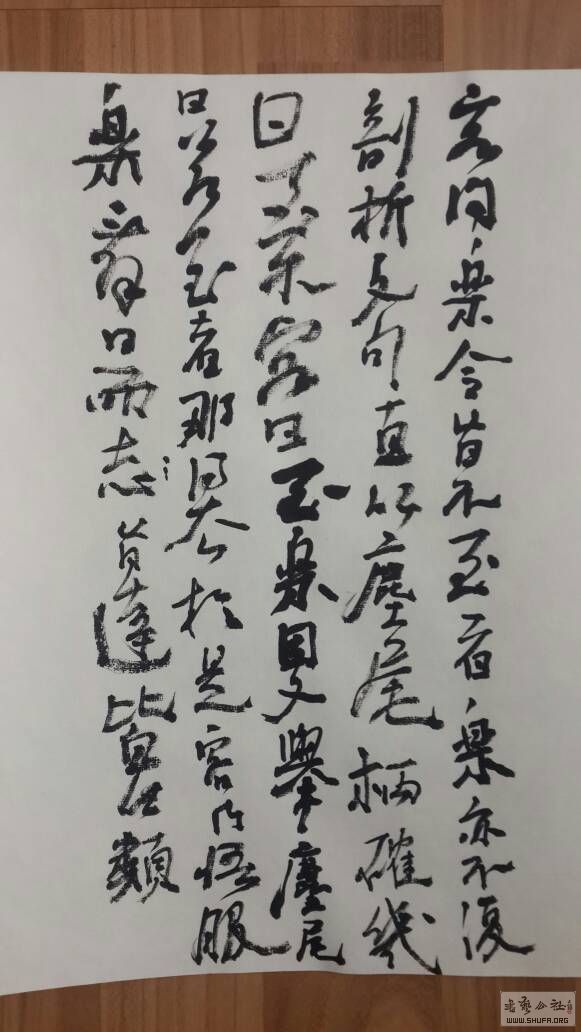 客問樂令旨不至者樂亦不復
剖析文句直以塵尾柄確幾
曰至不客曰至樂因又舉塵尾
曰若至者那得去於是客乃悟服
樂辭曰而志旨達皆此類
書藝公社
WWW.SHUFA.ORG